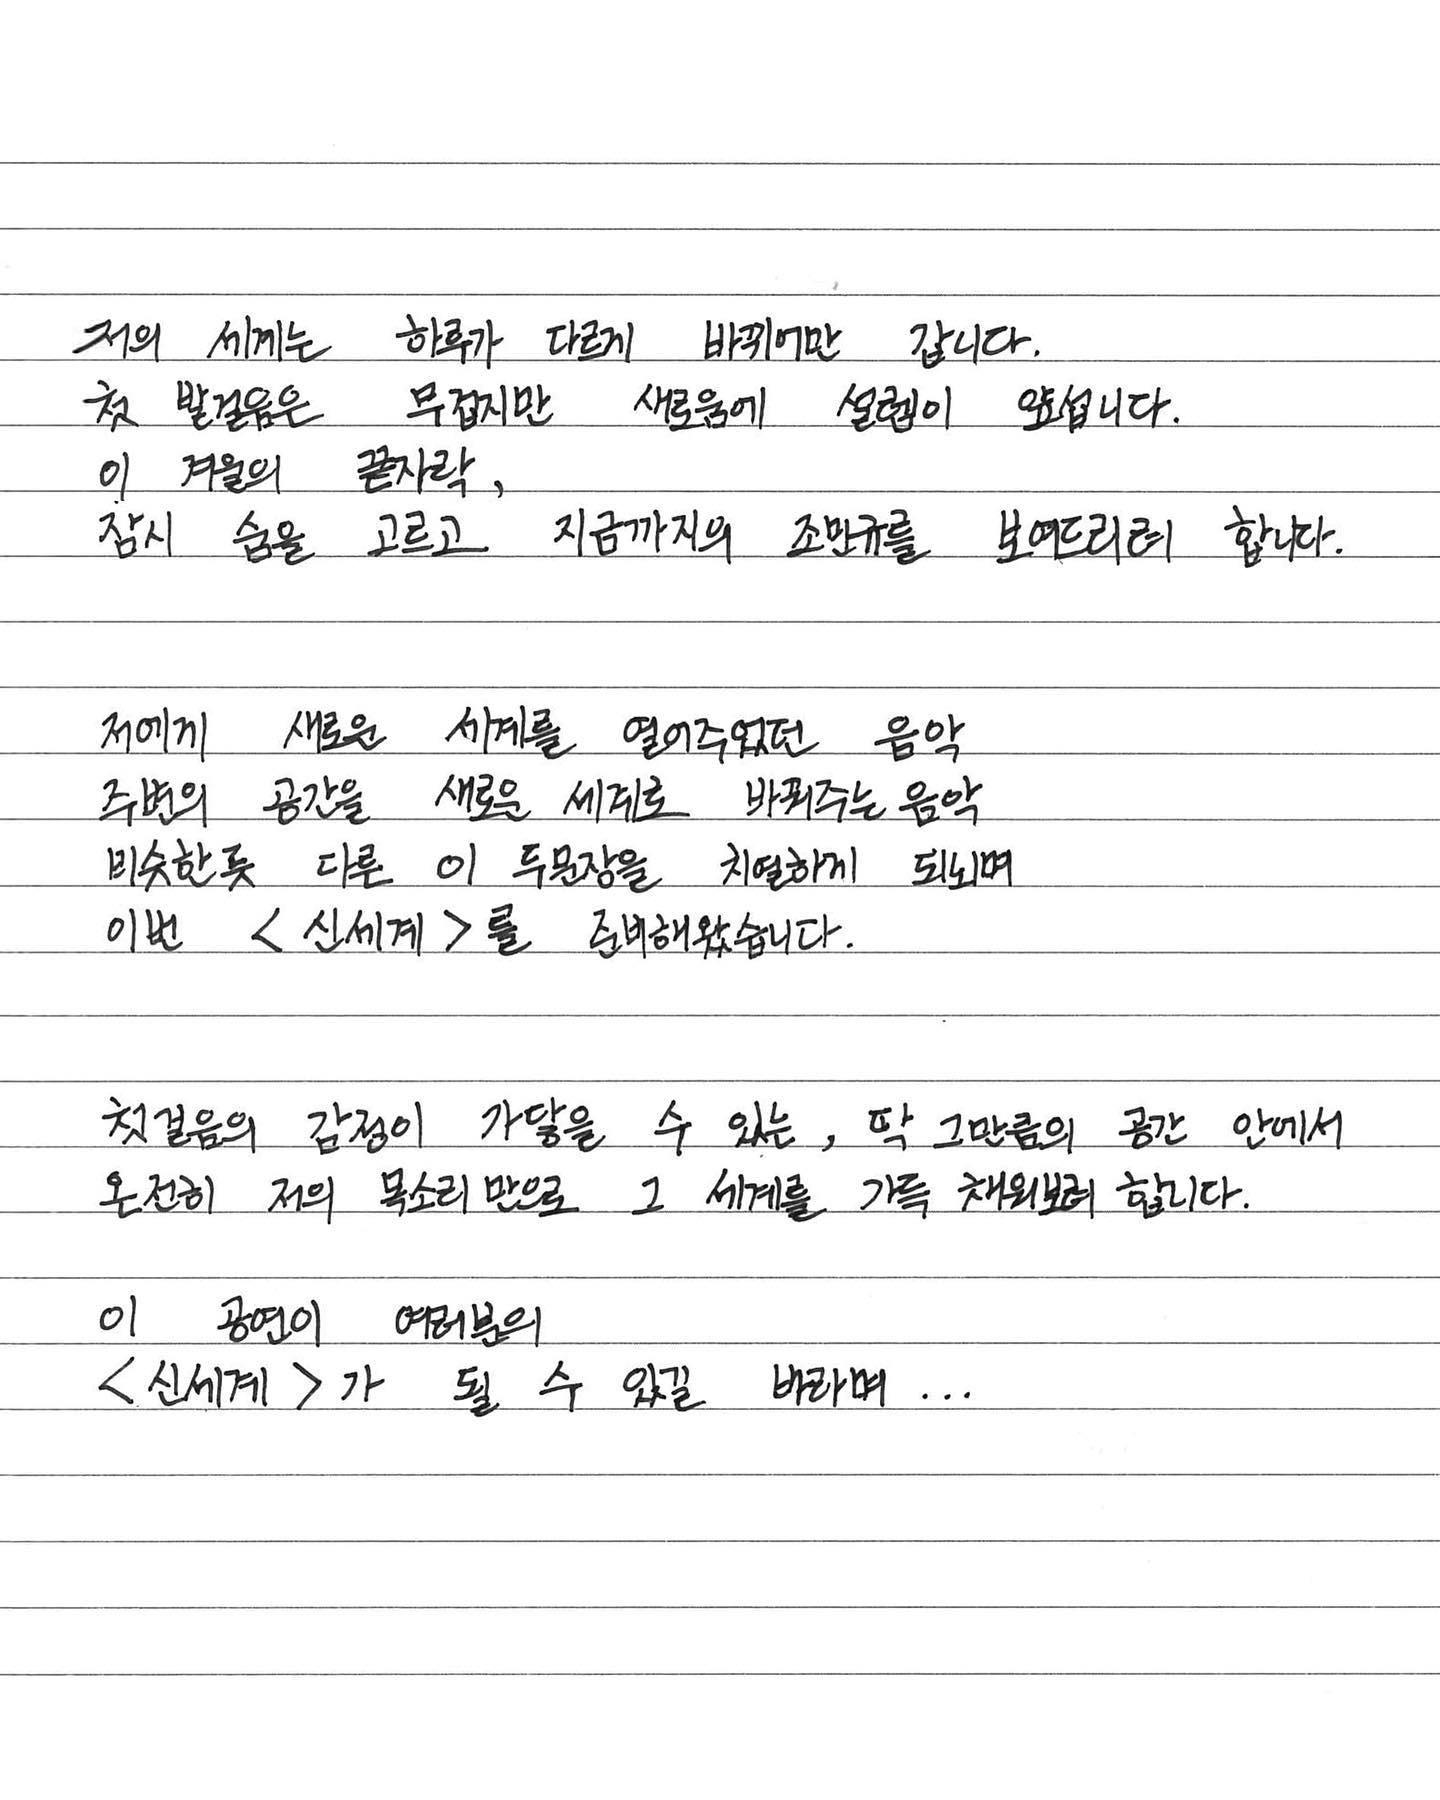 저의 세계는 하루가 다르게 바뀌어만 갑니다.
첫 발걸음은 무겁지만 새로움에 설렘이 앞섭니다.
이 겨울의 끝자락,
잠시 숨을 고르고 지금까지의 조만규를 보여드리려 합니다.
저에게 새로운 세계를 열어주었던 음악
주변의 공간을 새로운 세계로 바꿔주는 음악
비슷한듯 다른 이 두문장을 치열하게 되뇌며
이번 <신세계>를 준비해왔습니다.
첫걸음의 감정이 가닿을 수 있는, 딱 그만큼의 공간 안에서
온전히 저의 목소리만으로 그 세계를 가득 채워보려 합니다.
이 공연이 여러분의
<신세계>가 될 수 있길 바라며 ...